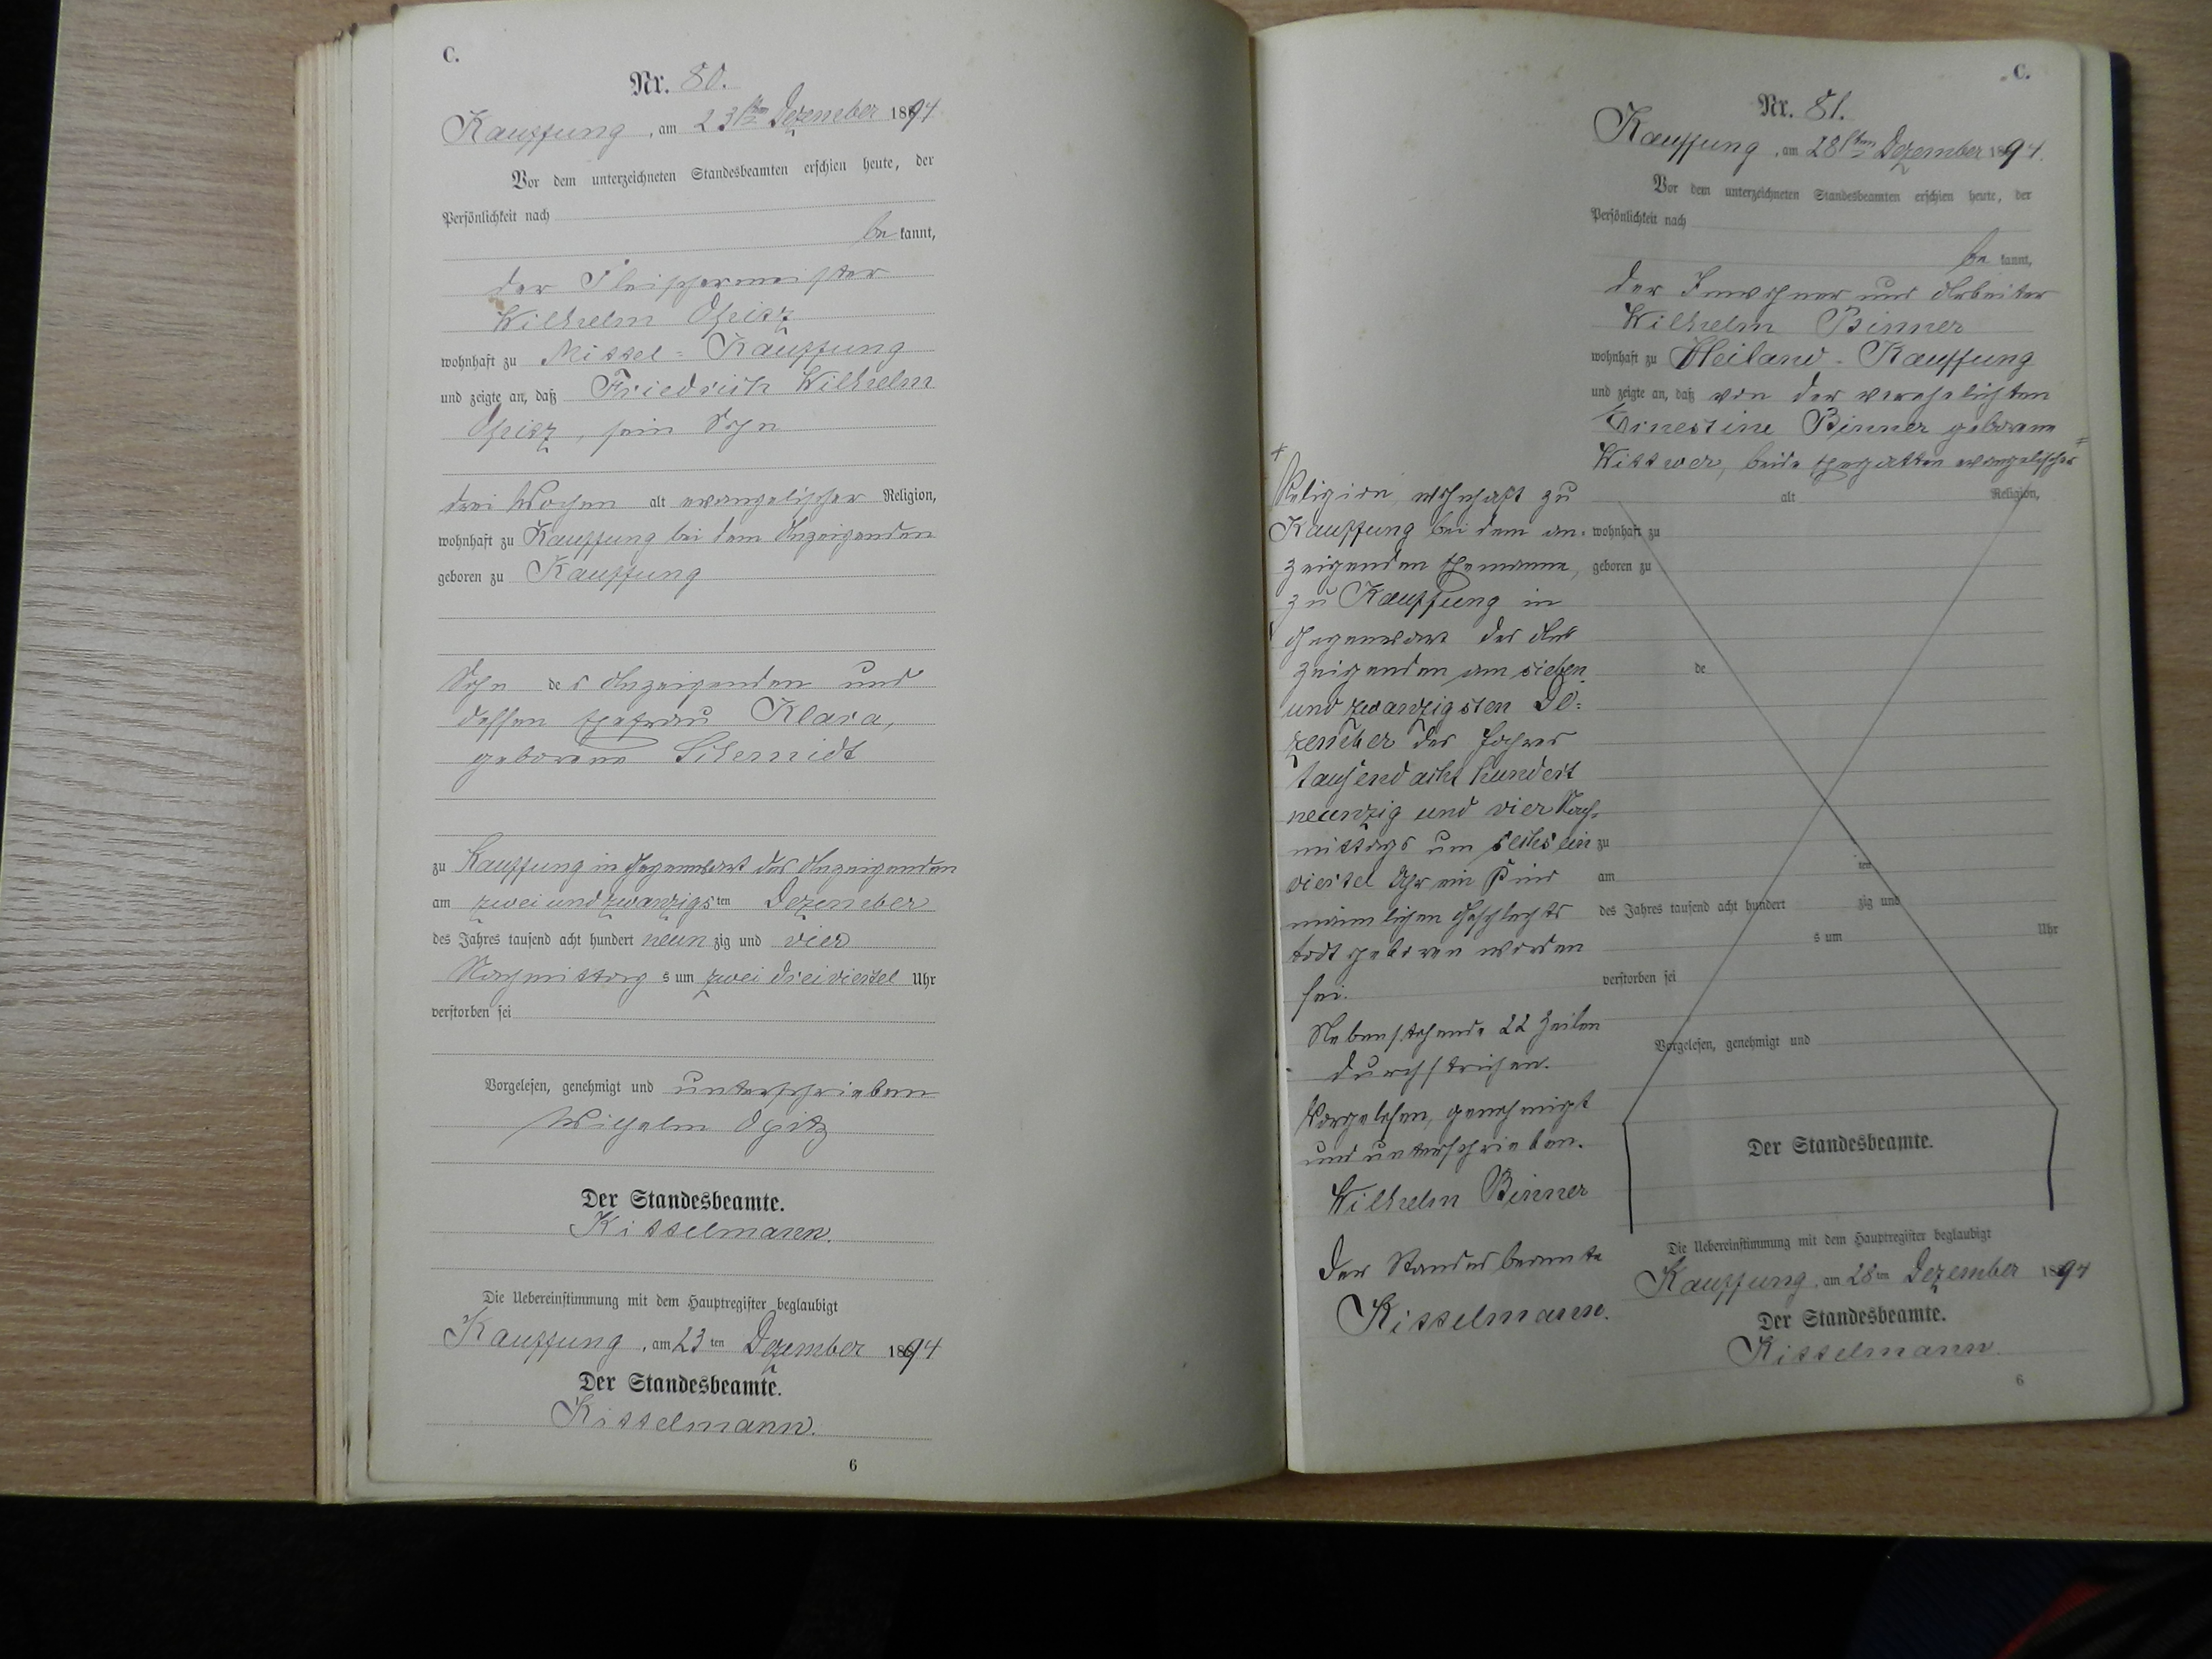 C.
Nr. 80.
Kauffung, am 23sten Dezember 1894
Vor dem unterzeichneten Standesbeamten erschien heute, der
Persönlichkeit nach
be kannt,
der Fleischermeister
Wilhelm Opitz
wohnhaft zu Mittel-Kauffung
und zeigte an, daß Friedrich Wilhelm
Opitz, sein Sohn
drei Wochen alt evangelischer Religion,
wohnhaft zu Kauffung bei dem Anzeigenden
geboren zu Kauffung
Sohn des Anzeigenden und
dessen Ehefrau Klara,
geborene Schmidt
zu Kauffung in Gegenwart des Anzeigenden
am zwei und zwanzigsten Dezember
des Jahres tausend acht hundert neun zig und vier
Nachmittag s um zwei dreiviertel Uhr
verstorben sei
Vorgelesen, genehmigt und unterschrieben
Wilhelm Opitz
Der Standesbeamte.
Kittelmann.
Die Uebereinstimmung mit dem Hauptregister beglaubigt
Kauffung, am 23 ten Dezember 1894
Der Standesbeamte.
Kittelmann.
6
C.
Nr. 81.
Kauffung, am 28sten Dezember 1894.
Vor dem unterzeichneten Standesbeamten erschien heute, der
Persönlichkeit nach
be kannt,
der Inwohner und Arbeiter
Wilhelm Binner
wohnhaft zu Heiland-Kauffung
und zeigte an, daß von der verehelichten
Ernestine Binner geborene
Wittwer, beide Ehegatten evangelischer
Religion, wohnhaft zu
Kauffung bei dem an-
zeigenden Ehemanne,
zu Kauffung in
Gegenwart des An-
zeigenden am sieben
und zwanzigsten De-
zember des Jahres
tausend acht hundert
neunzig und vier Nach-
mittags um sechs ein
viertel Uhr ein Kind
männlichen Geschlechts
todt geboren worden
sei.
Nebenstehende 22 Zeilen
durchstrichen.
Vorgelesen, genehmigt
und unterschrieben.
Wilhelm Binner
Der Standesbeamte
Kittelmann.
alt Religion,
wohnhaft zu
geboren zu
de
zu
am ten
des Jahres tausend acht hundert zig und
s um Uhr
verstorben sei
Vorgelesen, genehmigt und
Der Standesbeamte.
Die Uebereinstimmung mit dem Hauptregister beglaubigt
Kauffung, am 28 ten Dezember 1894
Der Standesbeamte.
Kittelmann.
6